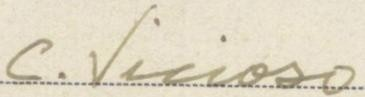 C. Vicioso